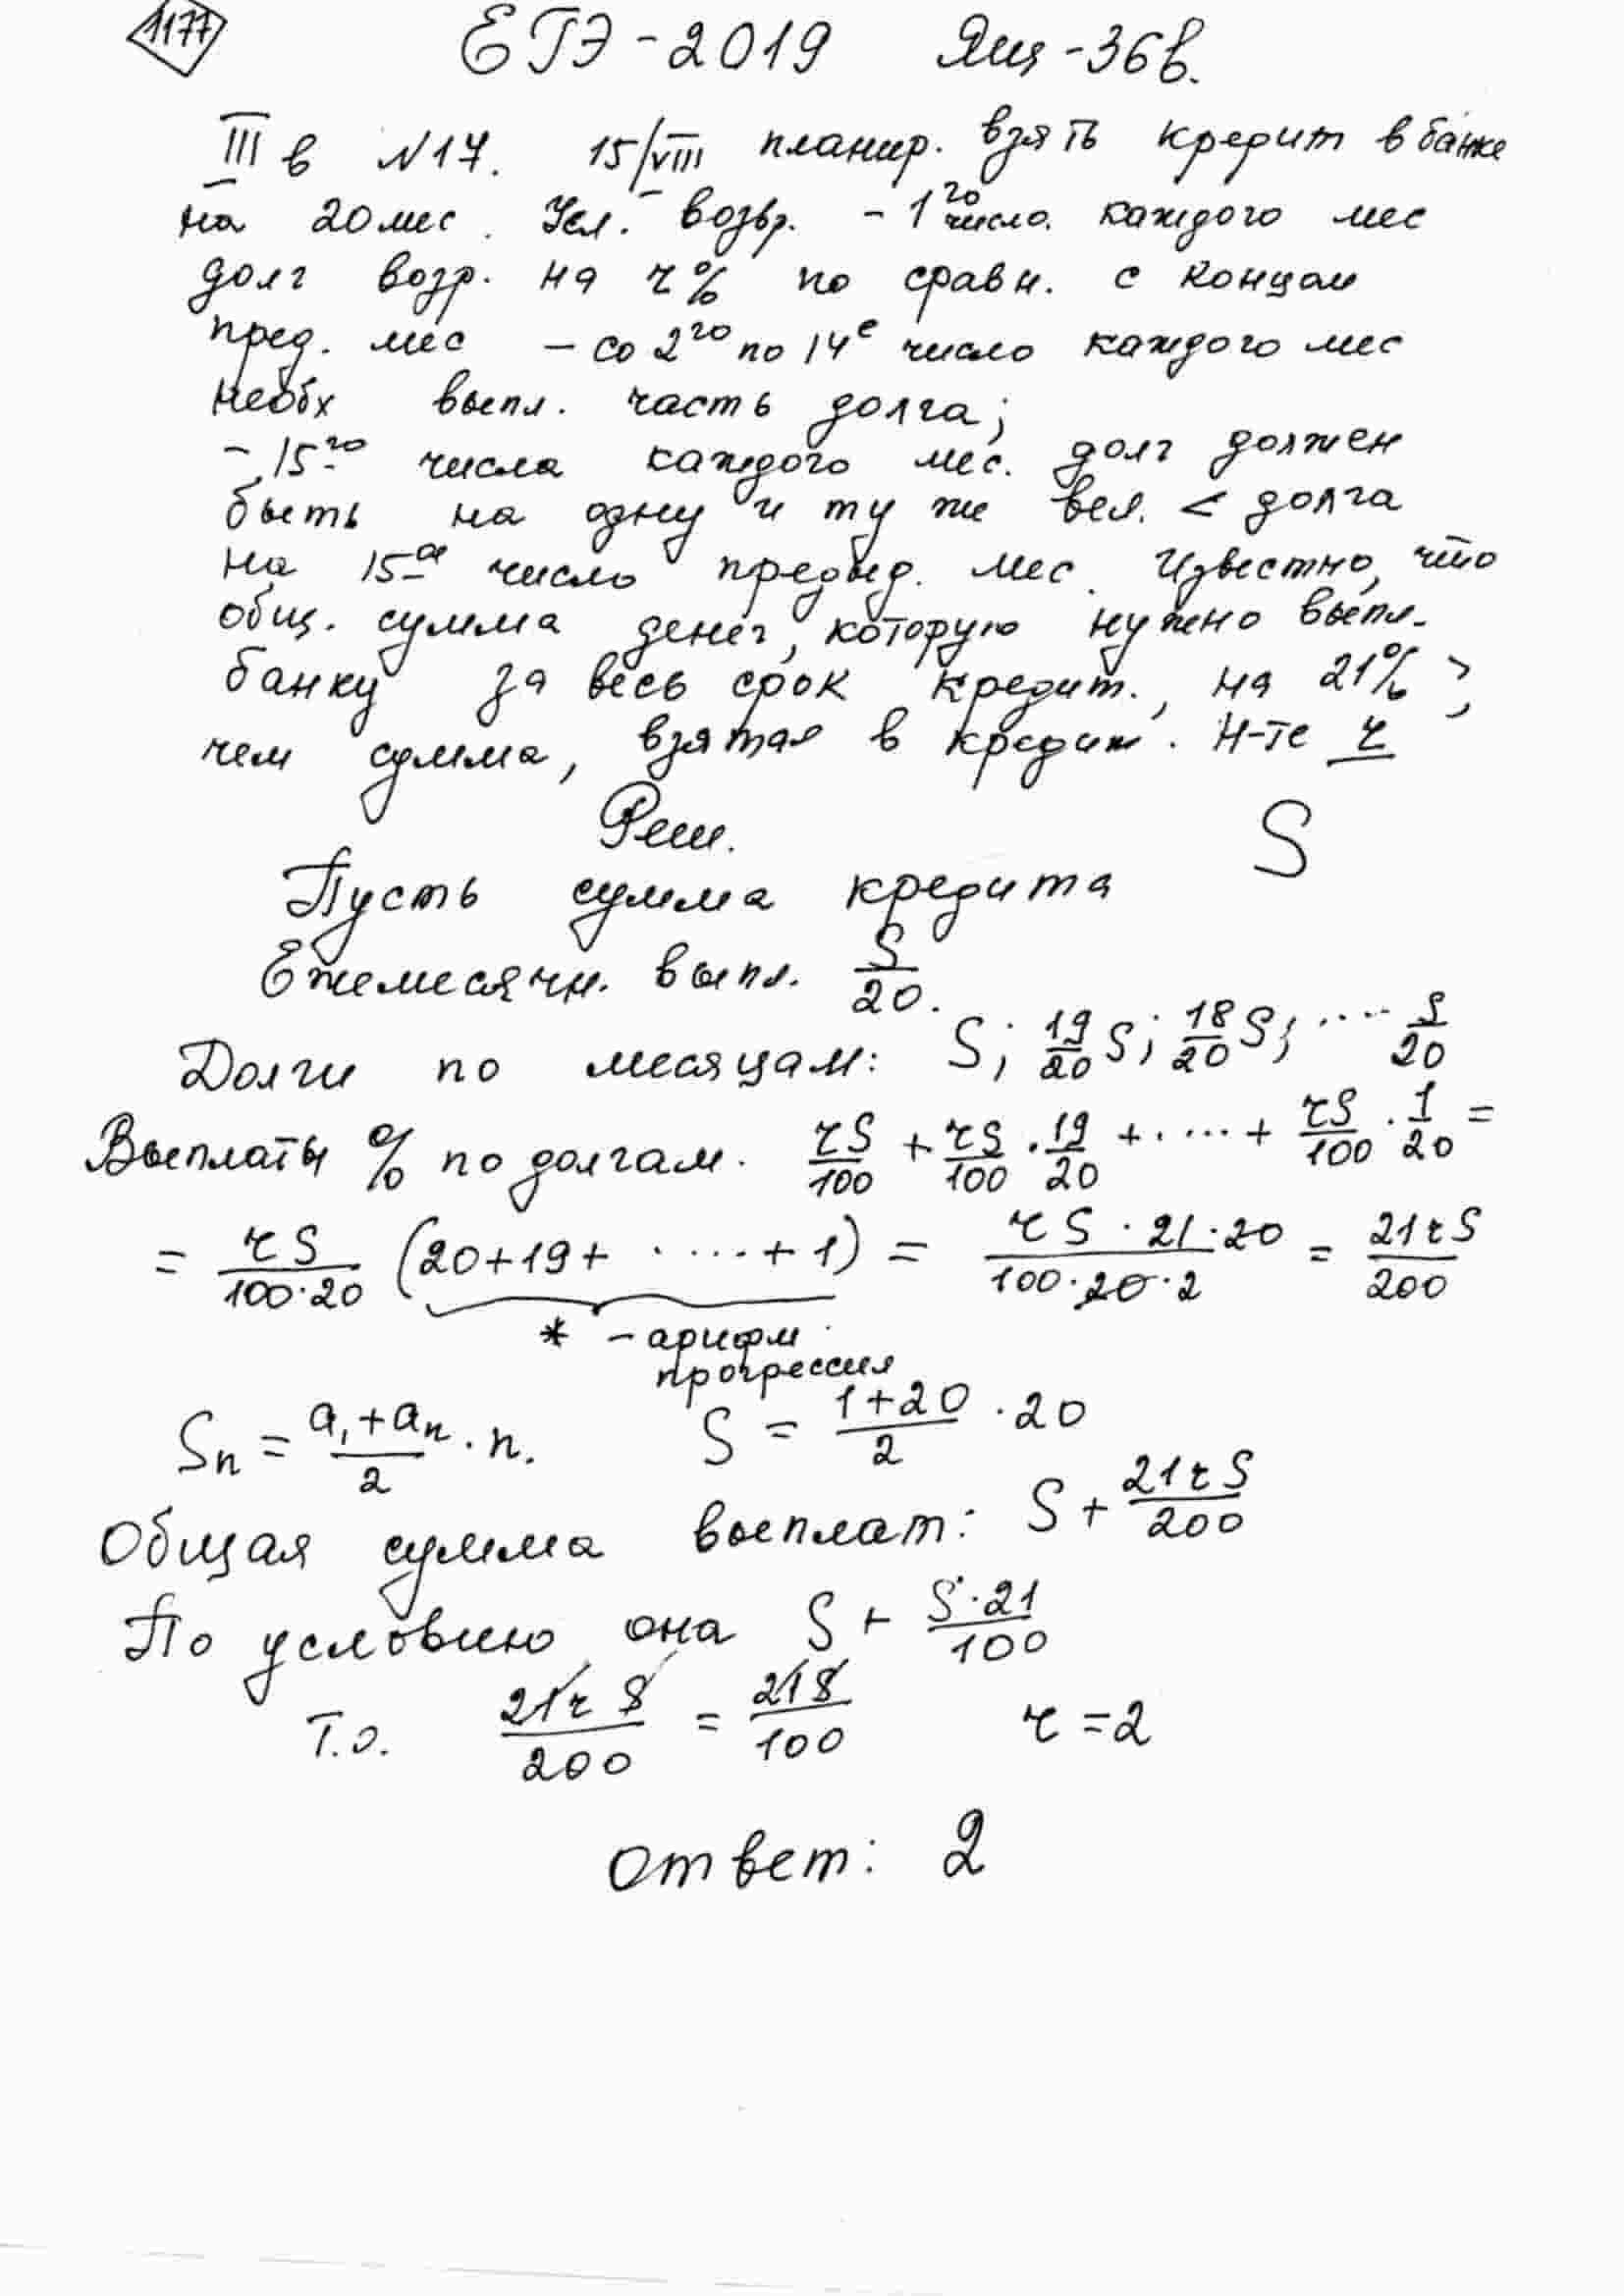 1177
ЕГЭ-2019 Ящ-36в.
III в №17. 15/VIII планир. взять кредит в банке
на 20 мес. Усл. возвр. - 1го число. каждого мес
долг возр. на r% по сравн. с концом
пред. мес - со 2го по 14е число каждого мес
необх выпл. часть долга;
- 15го числа каждого мес. долг должен
быть на одну и ту же вел. < долга
на 15ое число предыд. мес. Известно, что
общ. сумма денег, которую нужно выпл.
банку за весь срок кредит., на 21% >,
чем сумма, взятая в кредит. Н-те r
Реш.
Пусть сумма кредита S
Ежемесячн. выпл. S/20.
Долги по месяцам: S; 19/20 S; 18/20 S; .... S/20
Выплаты % по долгам. rS/100 + rS/100 · 19/20 + .... + rS/100 · 1/20 =
= rS/(100·20) (20+19+ ..... +1) = (rS·21·20)/(100·20·2) = 21rS/200
* - арифм.
прогрессия
Sn = (a1+an)/2 · n. S = (1+20)/2 · 20
Общая сумма выплат: S + 21rS/200
По условию она S + S·21/100
Т.о. 21rS/200 = 21S/100 r = 2
Ответ: 2